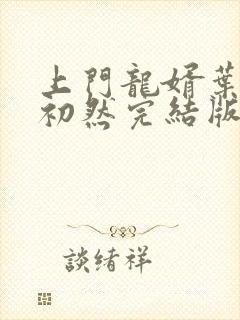 上門龍婿葉
初然完結版
談緒祥